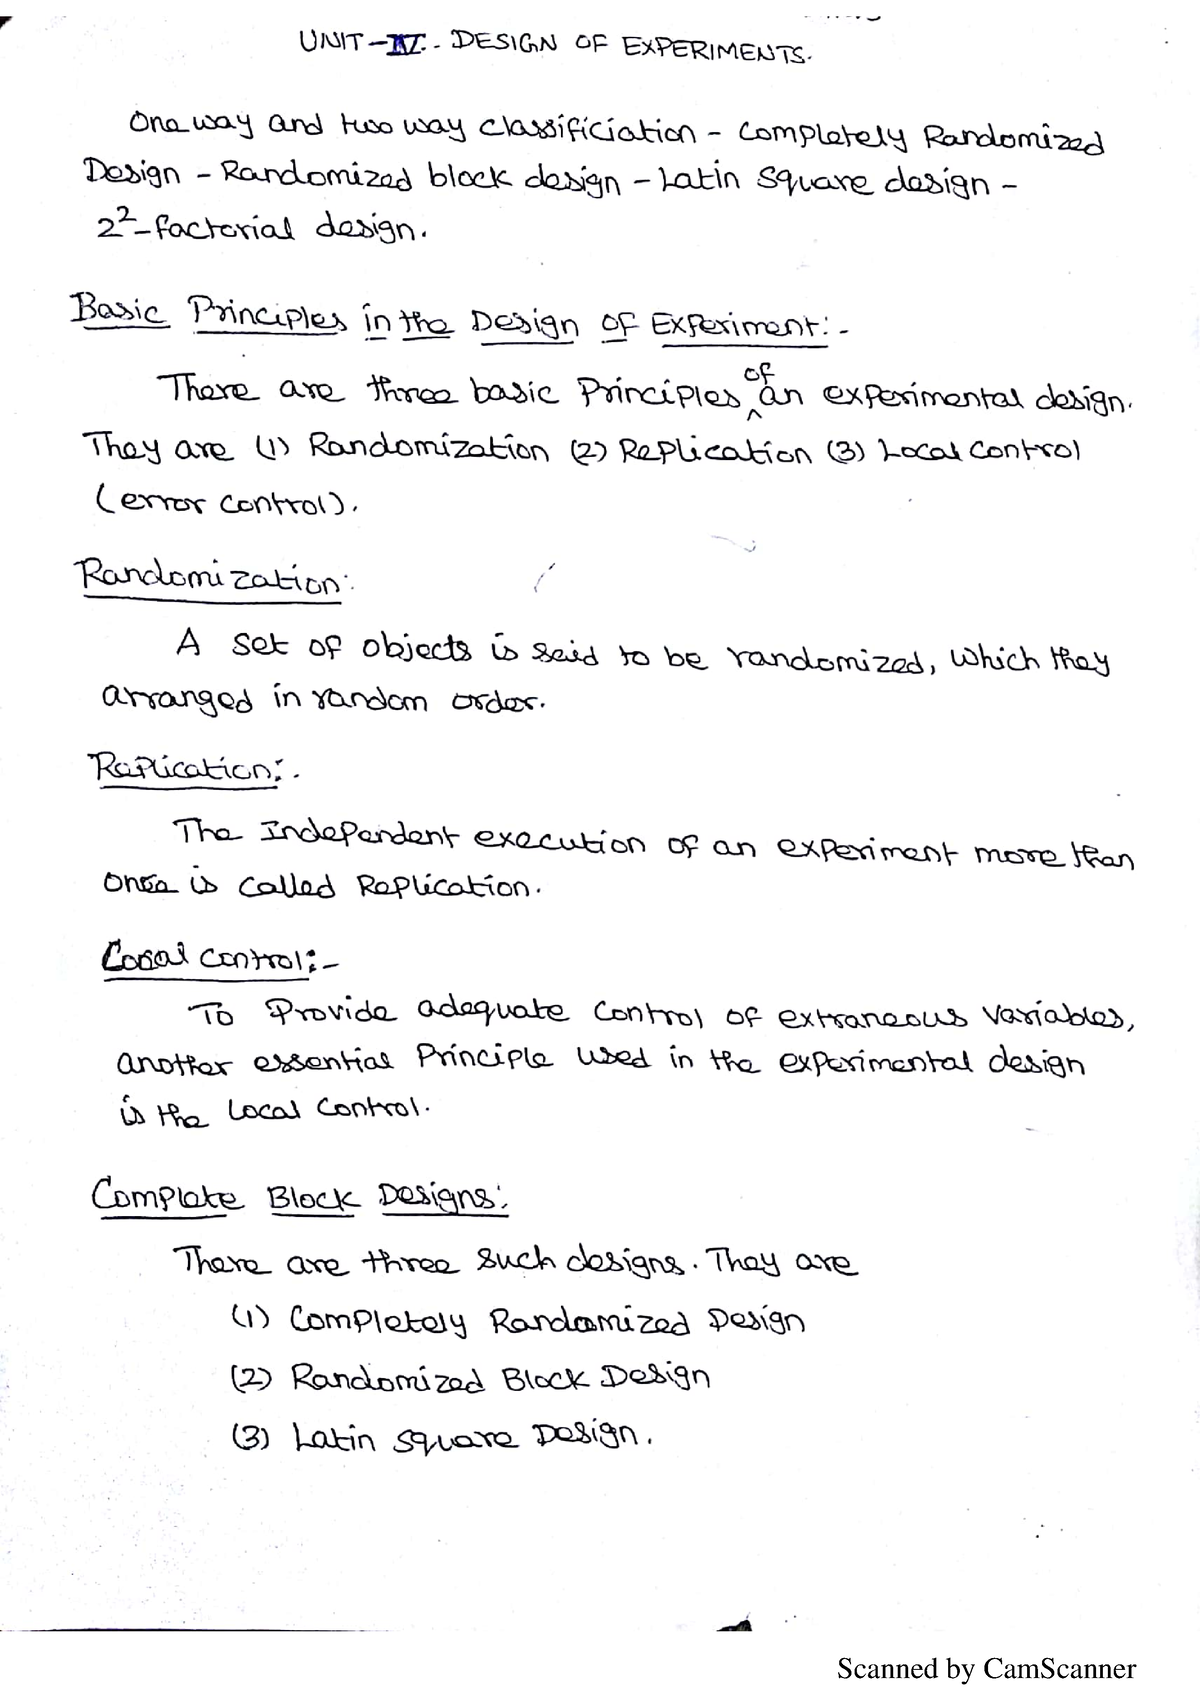 UNIT-IV. - DESIGN OF EXPERIMENTS.
One way and two way classificiation - Completely Randomized
Design - Randomized block design - Latin Square design -
2²-factorial design.
Basic Principles in the Design of Experiment:-
There are three basic Principles of an experimental design.
They are (1) Randomization (2) Replication (3) Local Control
(error control).
Randomization:
A set of objects is said to be randomized, which they
arranged in random order.
Replication:-
The Independent execution of an experiment more than
once is called Replication.
Local control:-
To Provide adequate control of extraneous variables,
another essential Principle used in the experimental design
is the Local Control.
Complete Block Designs:
There are three such designs. They are
(1) Completely Randomized Design
(2) Randomized Block Design
(3) Latin Square Design.
Scanned by CamScanner